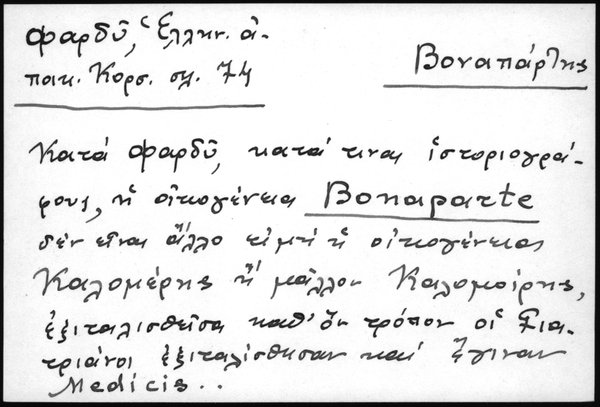 Φαρδῦ, Ἑλλην. ἀ-
ποικ. Κορσ. σλ. 74
Βοναπάρτης
Κατά Φαρδῦ, κατά τινας ἱστοριογρά-
φους, ἡ οἰκογένεια Bonaparte
δέν εἶναι ἄλλο εἰμή ἡ οἰκογένεια
Καλομέρης ἤ μᾶλλον Καλομοίρης,
ἐξιταλισθεῖσα καθ' ὅν τρόπον οἱ Για-
τριάνοι ἐξιταλίσθησαν καί ἔγιναν
Medicis..